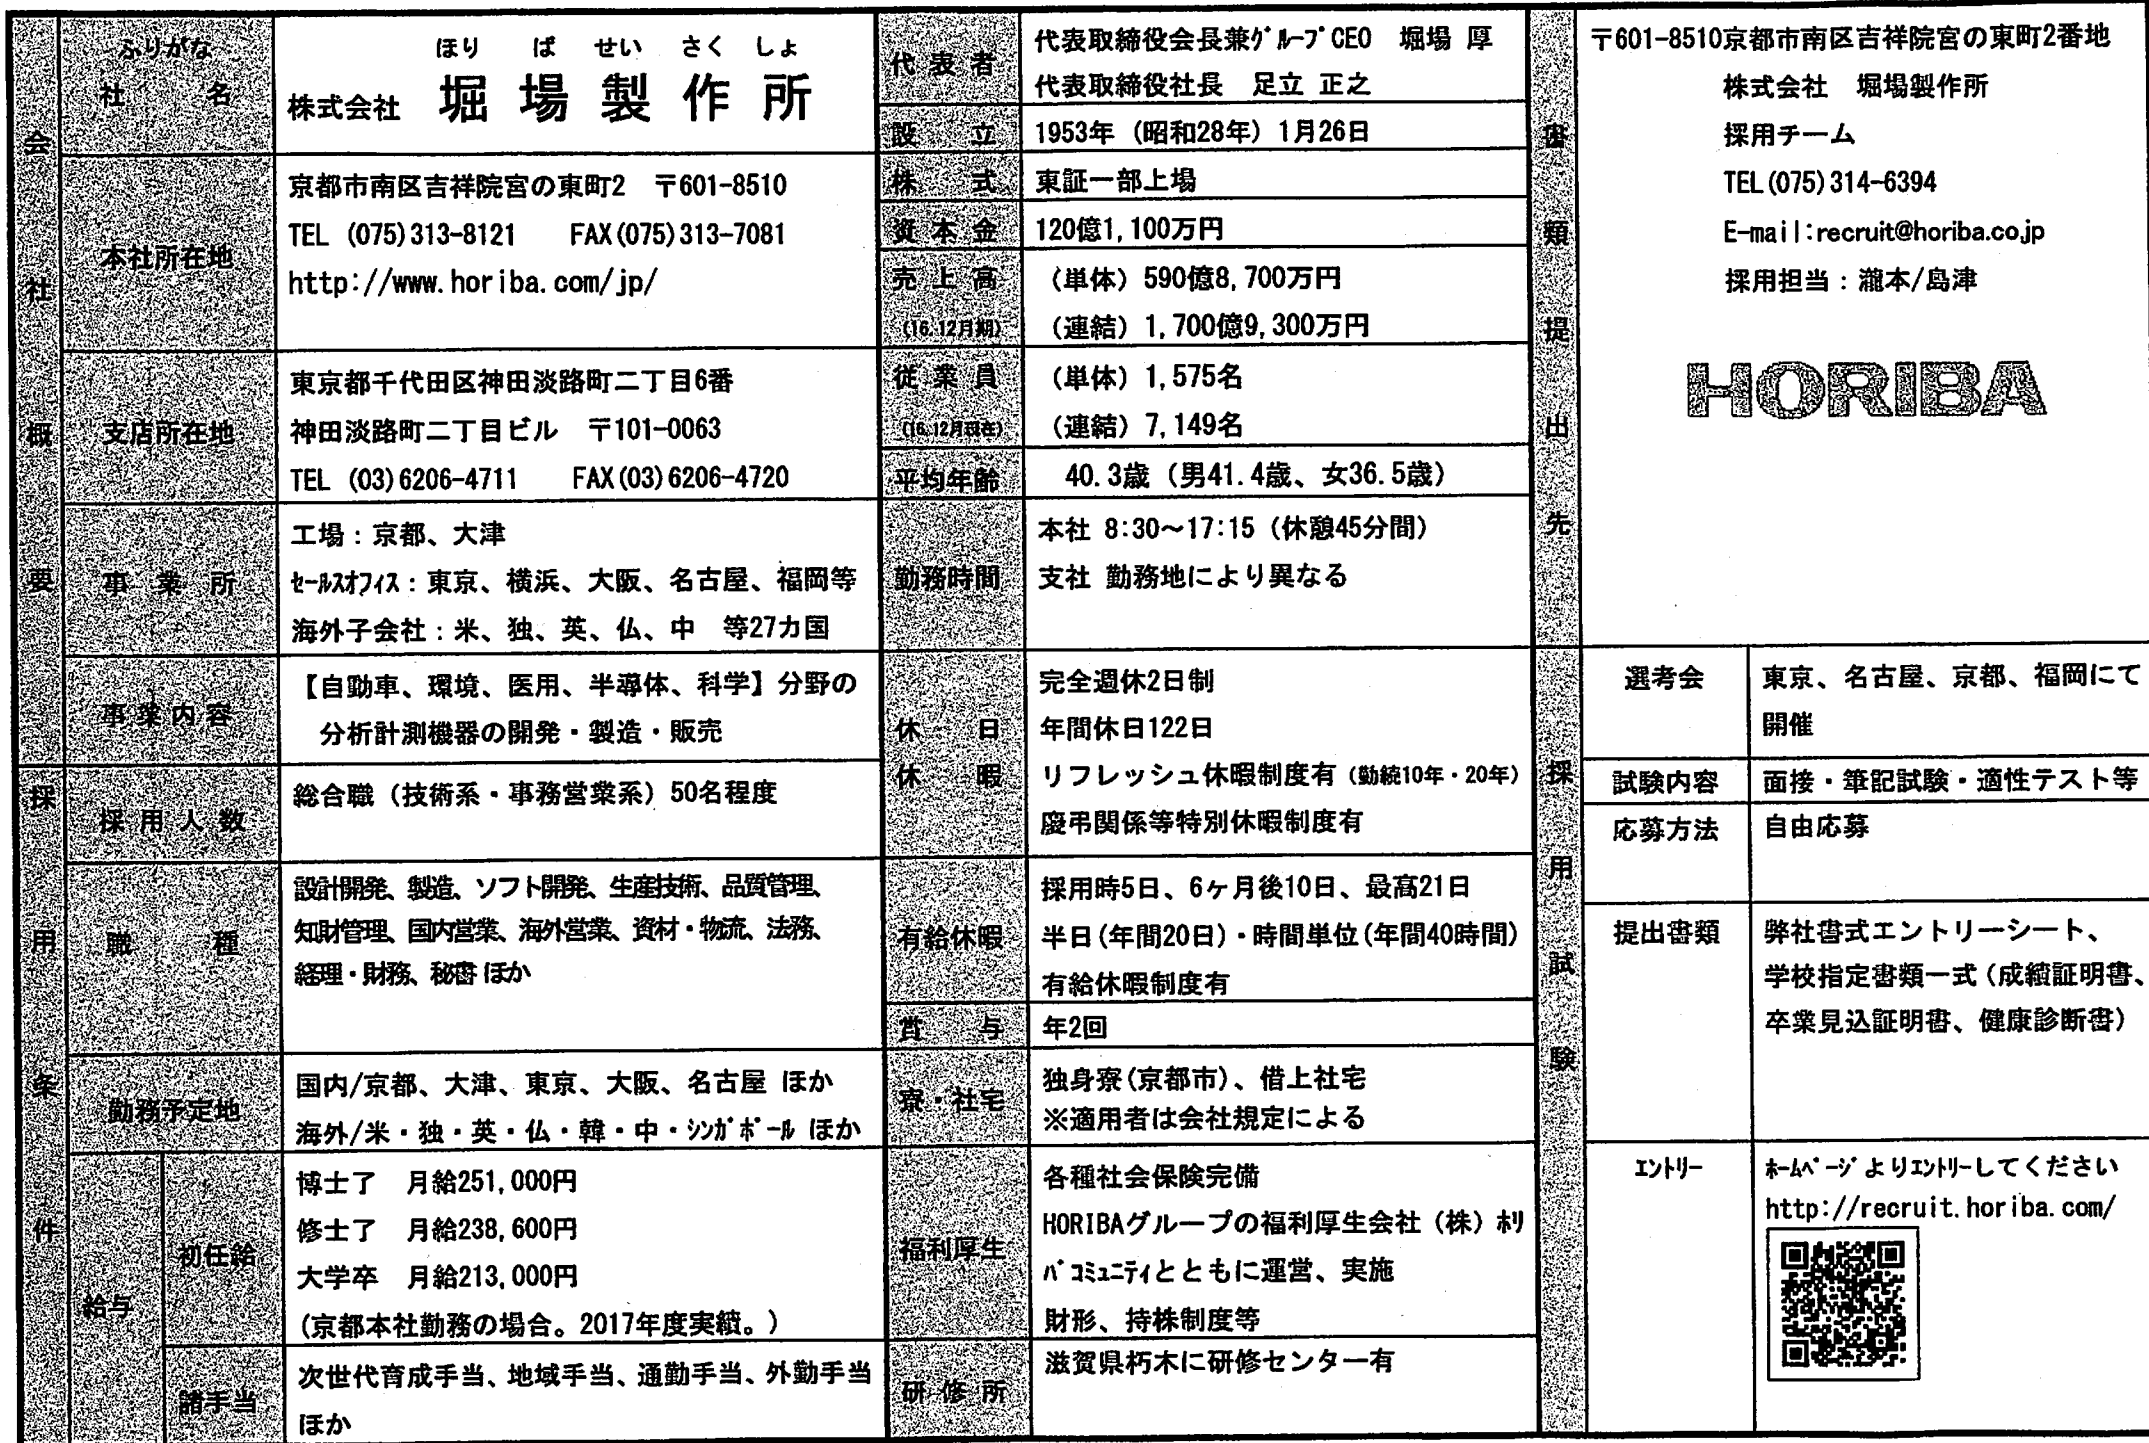 会社概要
ふりがな
社名
ほり ば せい さく しょ
株式会社 堀場製作所
本社所在地
京都市南区吉祥院宮の東町2 〒601-8510
TEL (075)313-8121 FAX(075)313-7081
http://www.horiba.com/jp/
支店所在地
東京都千代田区神田淡路町二丁目6番
神田淡路町二丁目ビル 〒101-0063
TEL (03)6206-4711 FAX(03)6206-4720
事業所
工場：京都、大津
ｾｰﾙｽｵﾌｨｽ：東京、横浜、大阪、名古屋、福岡等
海外子会社：米、独、英、仏、中 等27カ国
事業内容
【自動車、環境、医用、半導体、科学】分野の
分析計測機器の開発・製造・販売
採用条件
採用人数
総合職（技術系・事務営業系）50名程度
職種
設計開発、製造、ソフト開発、生産技術、品質管理、
知財管理、国内営業、海外営業、資材・物流、法務、
経理・財務、秘書 ほか
勤務予定地
国内/京都、大津、東京、大阪、名古屋 ほか
海外/米・独・英・仏・韓・中・ｼﾝｶﾞﾎﾟｰﾙ ほか
給与
初任給
博士了 月給251,000円
修士了 月給238,600円
大学卒 月給213,000円
(京都本社勤務の場合。2017年度実績。)
諸手当
次世代育成手当、地域手当、通勤手当、外勤手当
ほか
代表者
代表取締役会長兼ｸﾞﾙｰﾌﾟCEO 堀場 厚
代表取締役社長 足立 正之
設立
1953年（昭和28年）1月26日
株式
東証一部上場
資本金
120億1,100万円
売上高
(16.12月期)
（単体）590億8,700万円
（連結）1,700億9,300万円
従業員
(16.12月現在)
（単体）1,575名
（連結）7,149名
平均年齢
40.3歳（男41.4歳、女36.5歳）
勤務時間
本社 8:30～17:15（休憩45分間）
支社 勤務地により異なる
休日
休暇
完全週休2日制
年間休日122日
リフレッシュ休暇制度有（勤続10年・20年）
慶弔関係等特別休暇制度有
有給休暇
採用時5日、6ヶ月後10日、最高21日
半日(年間20日)・時間単位(年間40時間)
有給休暇制度有
賞与
年2回
寮・社宅
独身寮(京都市)、借上社宅
※適用者は会社規定による
福利厚生
各種社会保険完備
HORIBAグループの福利厚生会社（株）ﾎﾘ
ﾊﾞｺﾐｭﾆﾃｨとともに運営、実施
財形、持株制度等
研修所
滋賀県朽木に研修センター有
書類提出先
〒601-8510京都市南区吉祥院宮の東町2番地
株式会社 堀場製作所
採用チーム
TEL(075)314-6394
E-mail:recruit@horiba.co.jp
採用担当：瀧本/島津
HORIBA
採用試験
選考会
東京、名古屋、京都、福岡にて
開催
試験内容
面接・筆記試験・適性テスト等
応募方法
自由応募
提出書類
弊社書式エントリーシート、
学校指定書類一式(成績証明書、
卒業見込証明書、健康診断書)
ｴﾝﾄﾘｰ
ﾎｰﾑﾍﾟｰｼﾞよりｴﾝﾄﾘｰしてください
http://recruit.horiba.com/